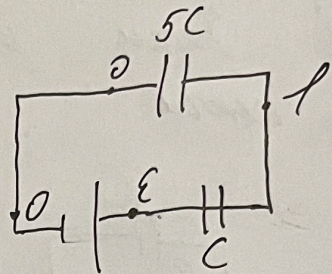 5C
0
φ
0
ε
C